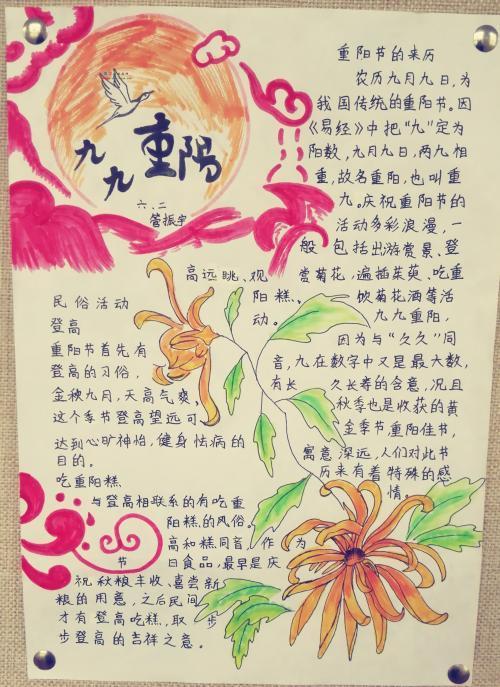 九九重阳
六、二
管振宇
重阳节的来历
农历九月九日，为
我国传统的重阳节。因
《易经》中把“九”定为
阳数，九月九日，两九相
重，故名重阳，也叫重
九。庆祝重阳节的
活动多彩浪漫，一
般包括出游赏景、登
高远眺、观赏菊花，遍插茱萸、吃重
阳糕、饮菊花酒等活
动。九九重阳，
因为与“久久”同
音，九在数字中又是最大数，
有长久长寿的含意，况且
秋季也是收获的黄
金季节重阳佳节，
寓意深远，人们对此节
历来有着特殊的感
情。
民俗活动
登高
重阳节首先有
登高的习俗，
金秋九月，天高气爽
这个季节登高望远可
达到心旷神怡，健身怯病的
目的。
吃重阳糕
与登高相联系的有吃重
阳糕的风俗。
高和糕同音，作为
节日食品，最早是庆
祝秋粮丰收、喜尝新
粮的用意，之后民间
才有登高吃糕，取步
步登高的吉祥之意。